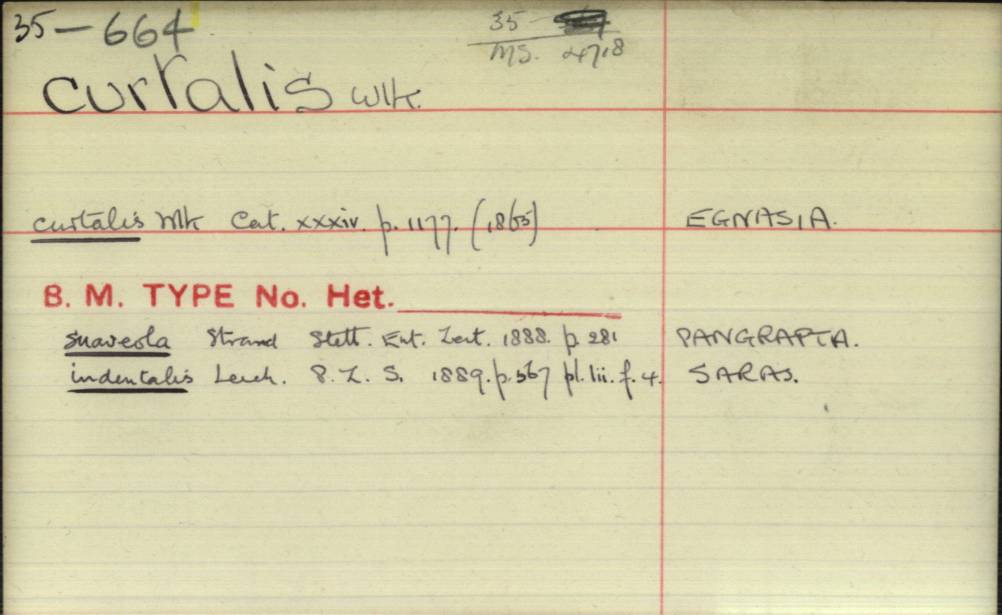 35-664
35-
MS. 4718
curtalis Wlk.
curtalis Wlk Cat. xxxiv. p. 1177. (1865) EGNASIA.
B. M. TYPE No. Het.
suaveola Strand Stett. Ent. Zeit. 1888. p. 281 PANGRAPTA.
indentalis Leech. P. Z. S. 1889. p. 567 pl. lii. f. 4. SARAS.